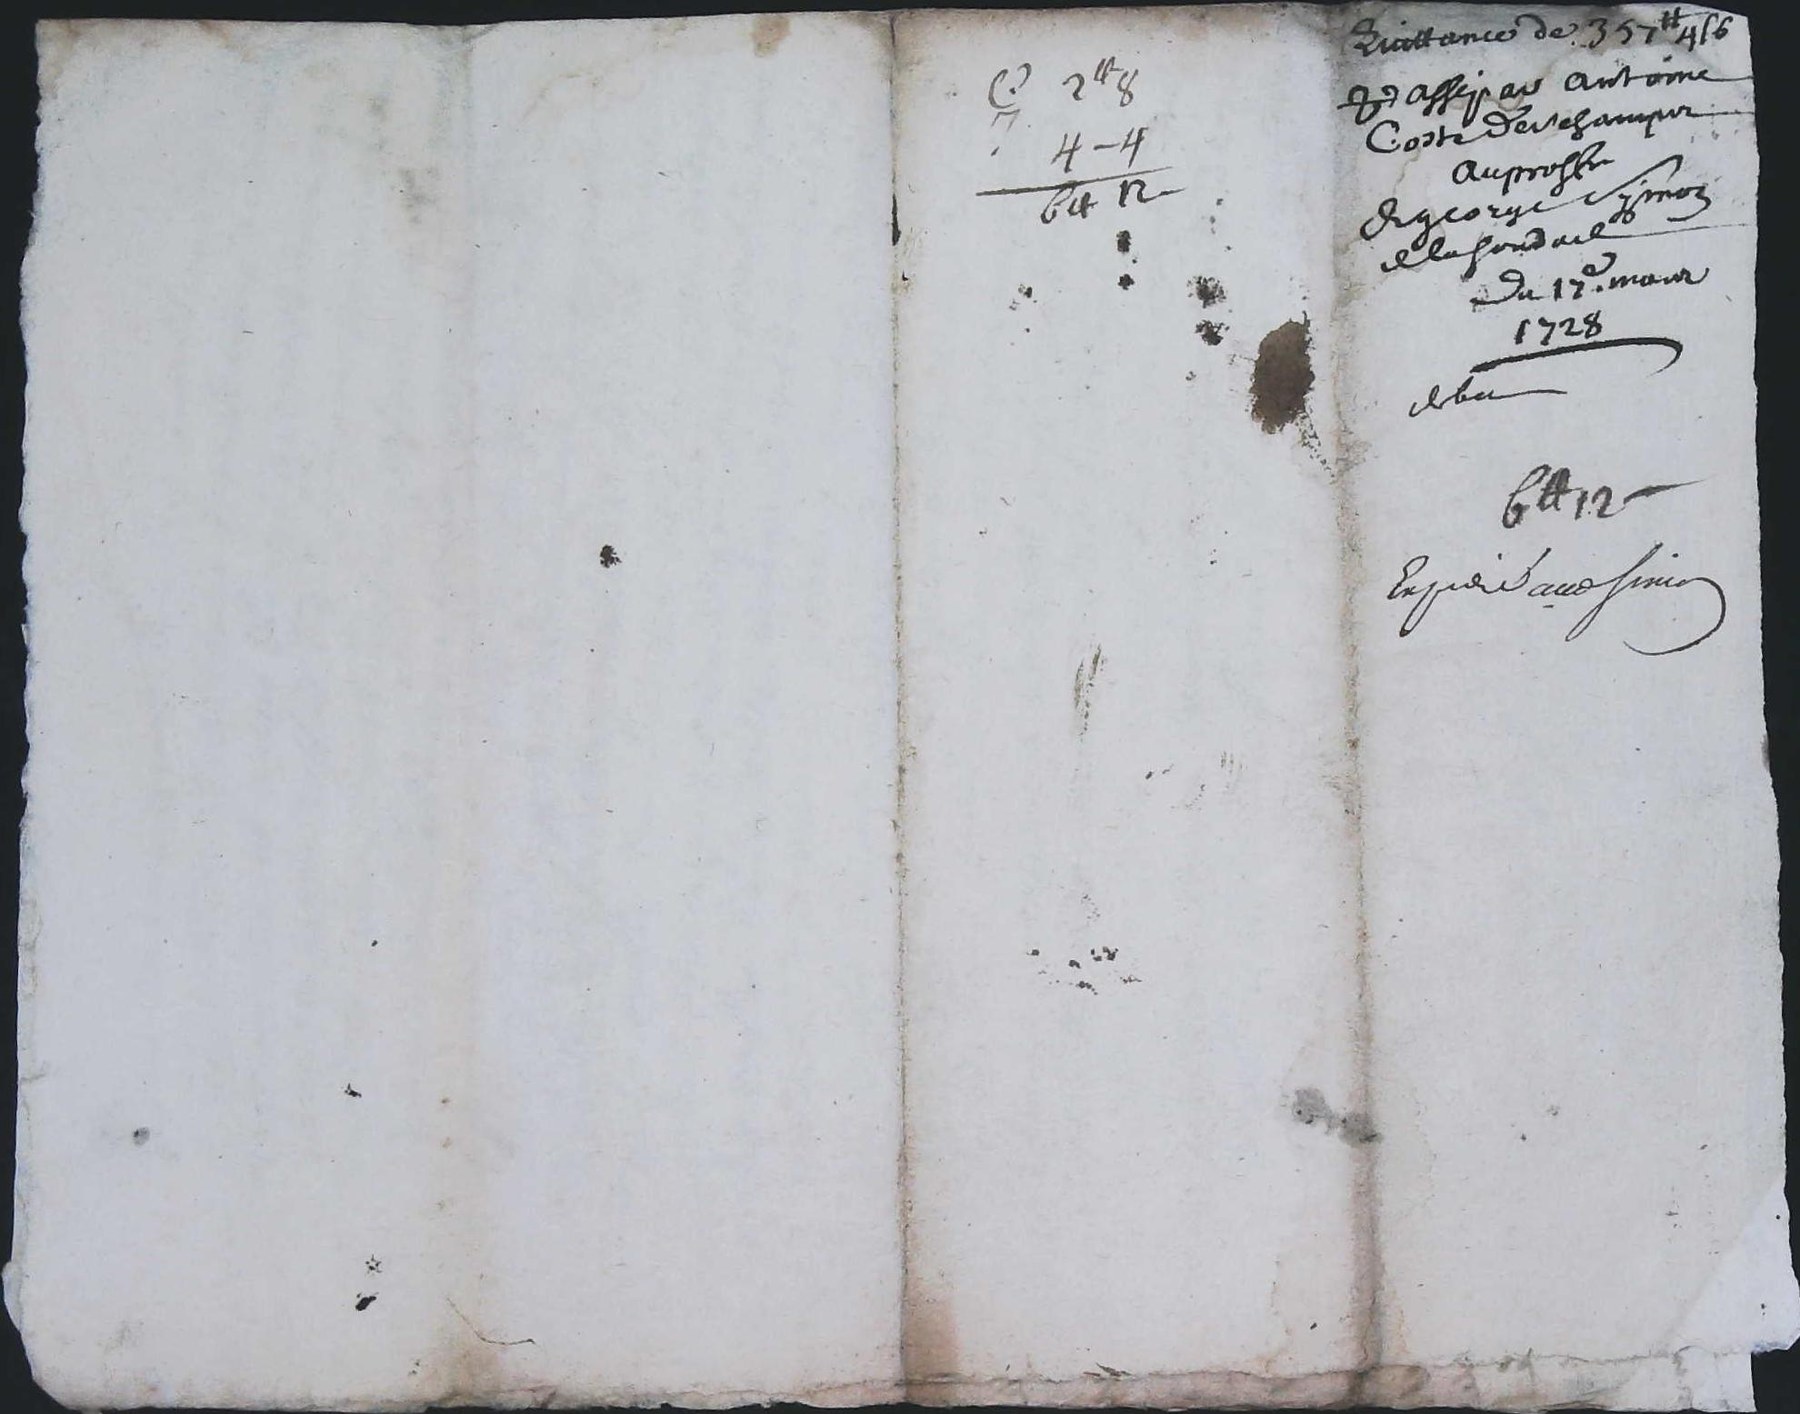 C. 2tt 8
4 - 4
6tt 12
Quittance de 357tt 4s 6
par Antoine
Coste Deschamps
au proffit
de george Symon
du 17e. mars
1728
6tt 12
Expedié aud simon